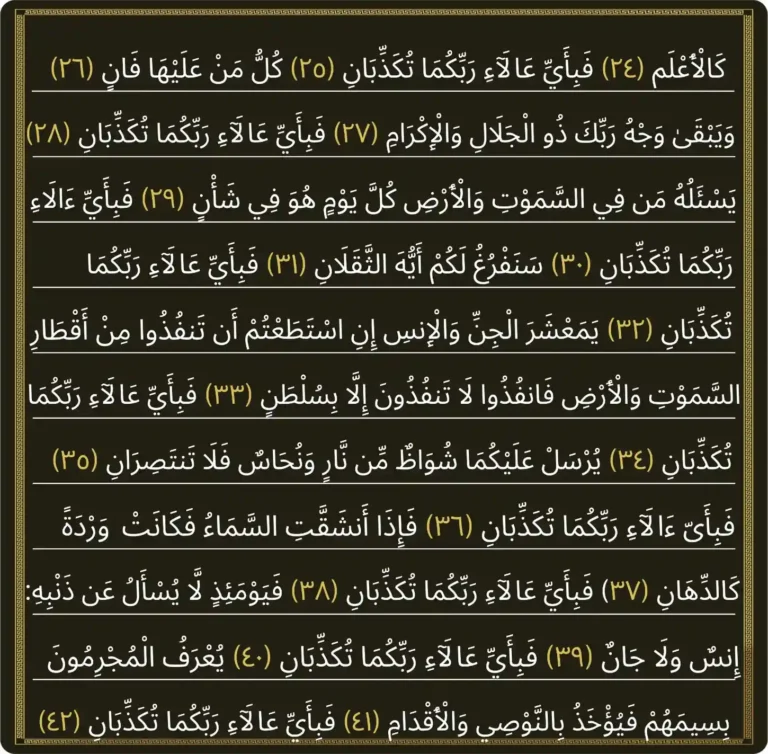 كَالْأَعْلَمِ (٢٤) فَبِأَيِّ عَالَآءِ رَبِّكُمَا تُكَذِّبَانِ (٢٥) كُلُّ مَنْ عَلَيْهَا فَانٍ (٢٦)
وَيَبْقَىٰ وَجْهُ رَبِّكَ ذُو الْجَلَالِ وَالْإِكْرَامِ (٢٧) فَبِأَيِّ عَالَآءِ رَبِّكُمَا تُكَذِّبَانِ (٢٨)
يَسْئَلُهُ مَن فِي السَّمَوْتِ وَالْأَرْضِ كُلَّ يَوْمٍ هُوَ فِي شَأْنٍ (٢٩) فَبِأَيِّ ءَالَاءِ
رَبِّكُمَا تُكَذِّبَانِ (٣٠) سَنَفْرُغُ لَكُمْ أَيُّهَ الثَّقَلَانِ (٣١) فَبِأَيِّ عَالَآءِ رَبِّكُمَا
تُكَذِّبَانِ (٣٢) يَمَعْشَرَ الْجِنِّ وَالْإِنسِ إِنِ اسْتَطَعْتُمْ أَن تَنفُذُوا مِنْ أَقْطَارِ
السَّمَوْتِ وَالْأَرْضِ فَانفُذُوا لَا تَنفُذُونَ إِلَّا بِسُلْطَنٍ (٣٣) فَبِأَيِّ عَالَآءِ رَبِّكُمَا
تُكَذِّبَانِ (٣٤) يُرْسَلْ عَلَيْكُمَا شُوَاظٌ مِّن نَّارٍ وَنُحَاسٌ فَلَا تَنتَصِرَانِ (٣٥)
فَبِأَىّ ءَالَآءِ رَبِّكُمَا تُكَذِّبَانِ (٣٦) فَإِذَا أَنشَقَّتِ السَّمَاءُ فَكَانَتْ وَرْدَةً
كَالدِّهَانِ (٣٧) فَبِأَيِّ عَالَآءِ رَبِّكُمَا تُكَذِّبَانِ (٣٨) فَيَوْمَئِذٍ لَّا يُسْأَلُ عَن ذَنْبِهِ:
إِنسٌ وَلَا جَانٌ (٣٩) فَبِأَيِّ عَالَآءِ رَبِّكُمَا تُكَذِّبَانِ (٤٠) يُعْرَفُ الْمُجْرِمُونَ
بِسِيمَهُمْ فَيُؤْخَذُ بِالنَّوْصِي وَالْأَقْدَامِ (٤١) فَبِأَيِّ عَالَآءِ رَبِّكُمَا تُكَذِّبَانِ (٤٢)